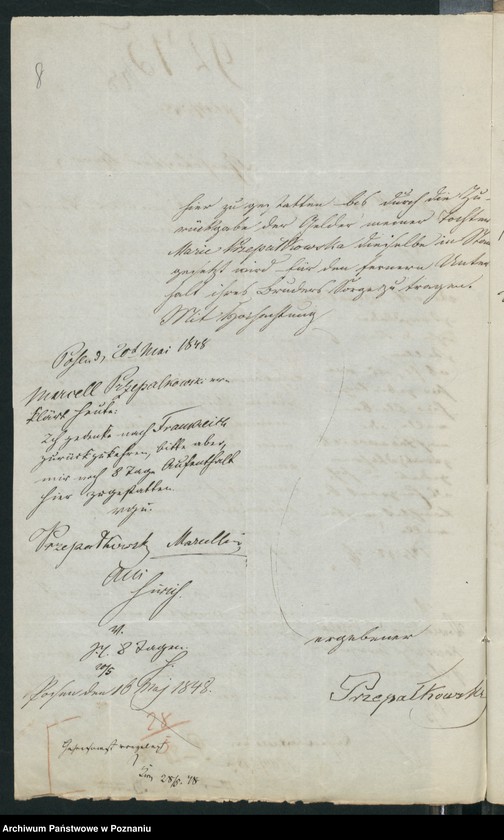 8
hier zu gestatten bis durch die Zu-
rückgabe der Gelder meiner Tochter
Marie Przepalkowska dieselbe in Stand
gesetzt wird für den fernern Unter
halt ihres Bruders Sorge zu tragen.
Mit Hochachtung
ergebener
Przepałkowski
Posen d. 20t Mai 1848
Marcell Przepalkowski er-
klärt heute:
Ich gedenke nach Frankreich
zurückzukehren, bitte aber,
mir noch 8 Tage Aufenthalt
hier zu gestatten.
vgu.
Przepałkowski Marcelli
8 Tagen
20/5
Posen den 16 Maj 1848.
28
28/5. 48
Archiwum Państwowe w Poznaniu